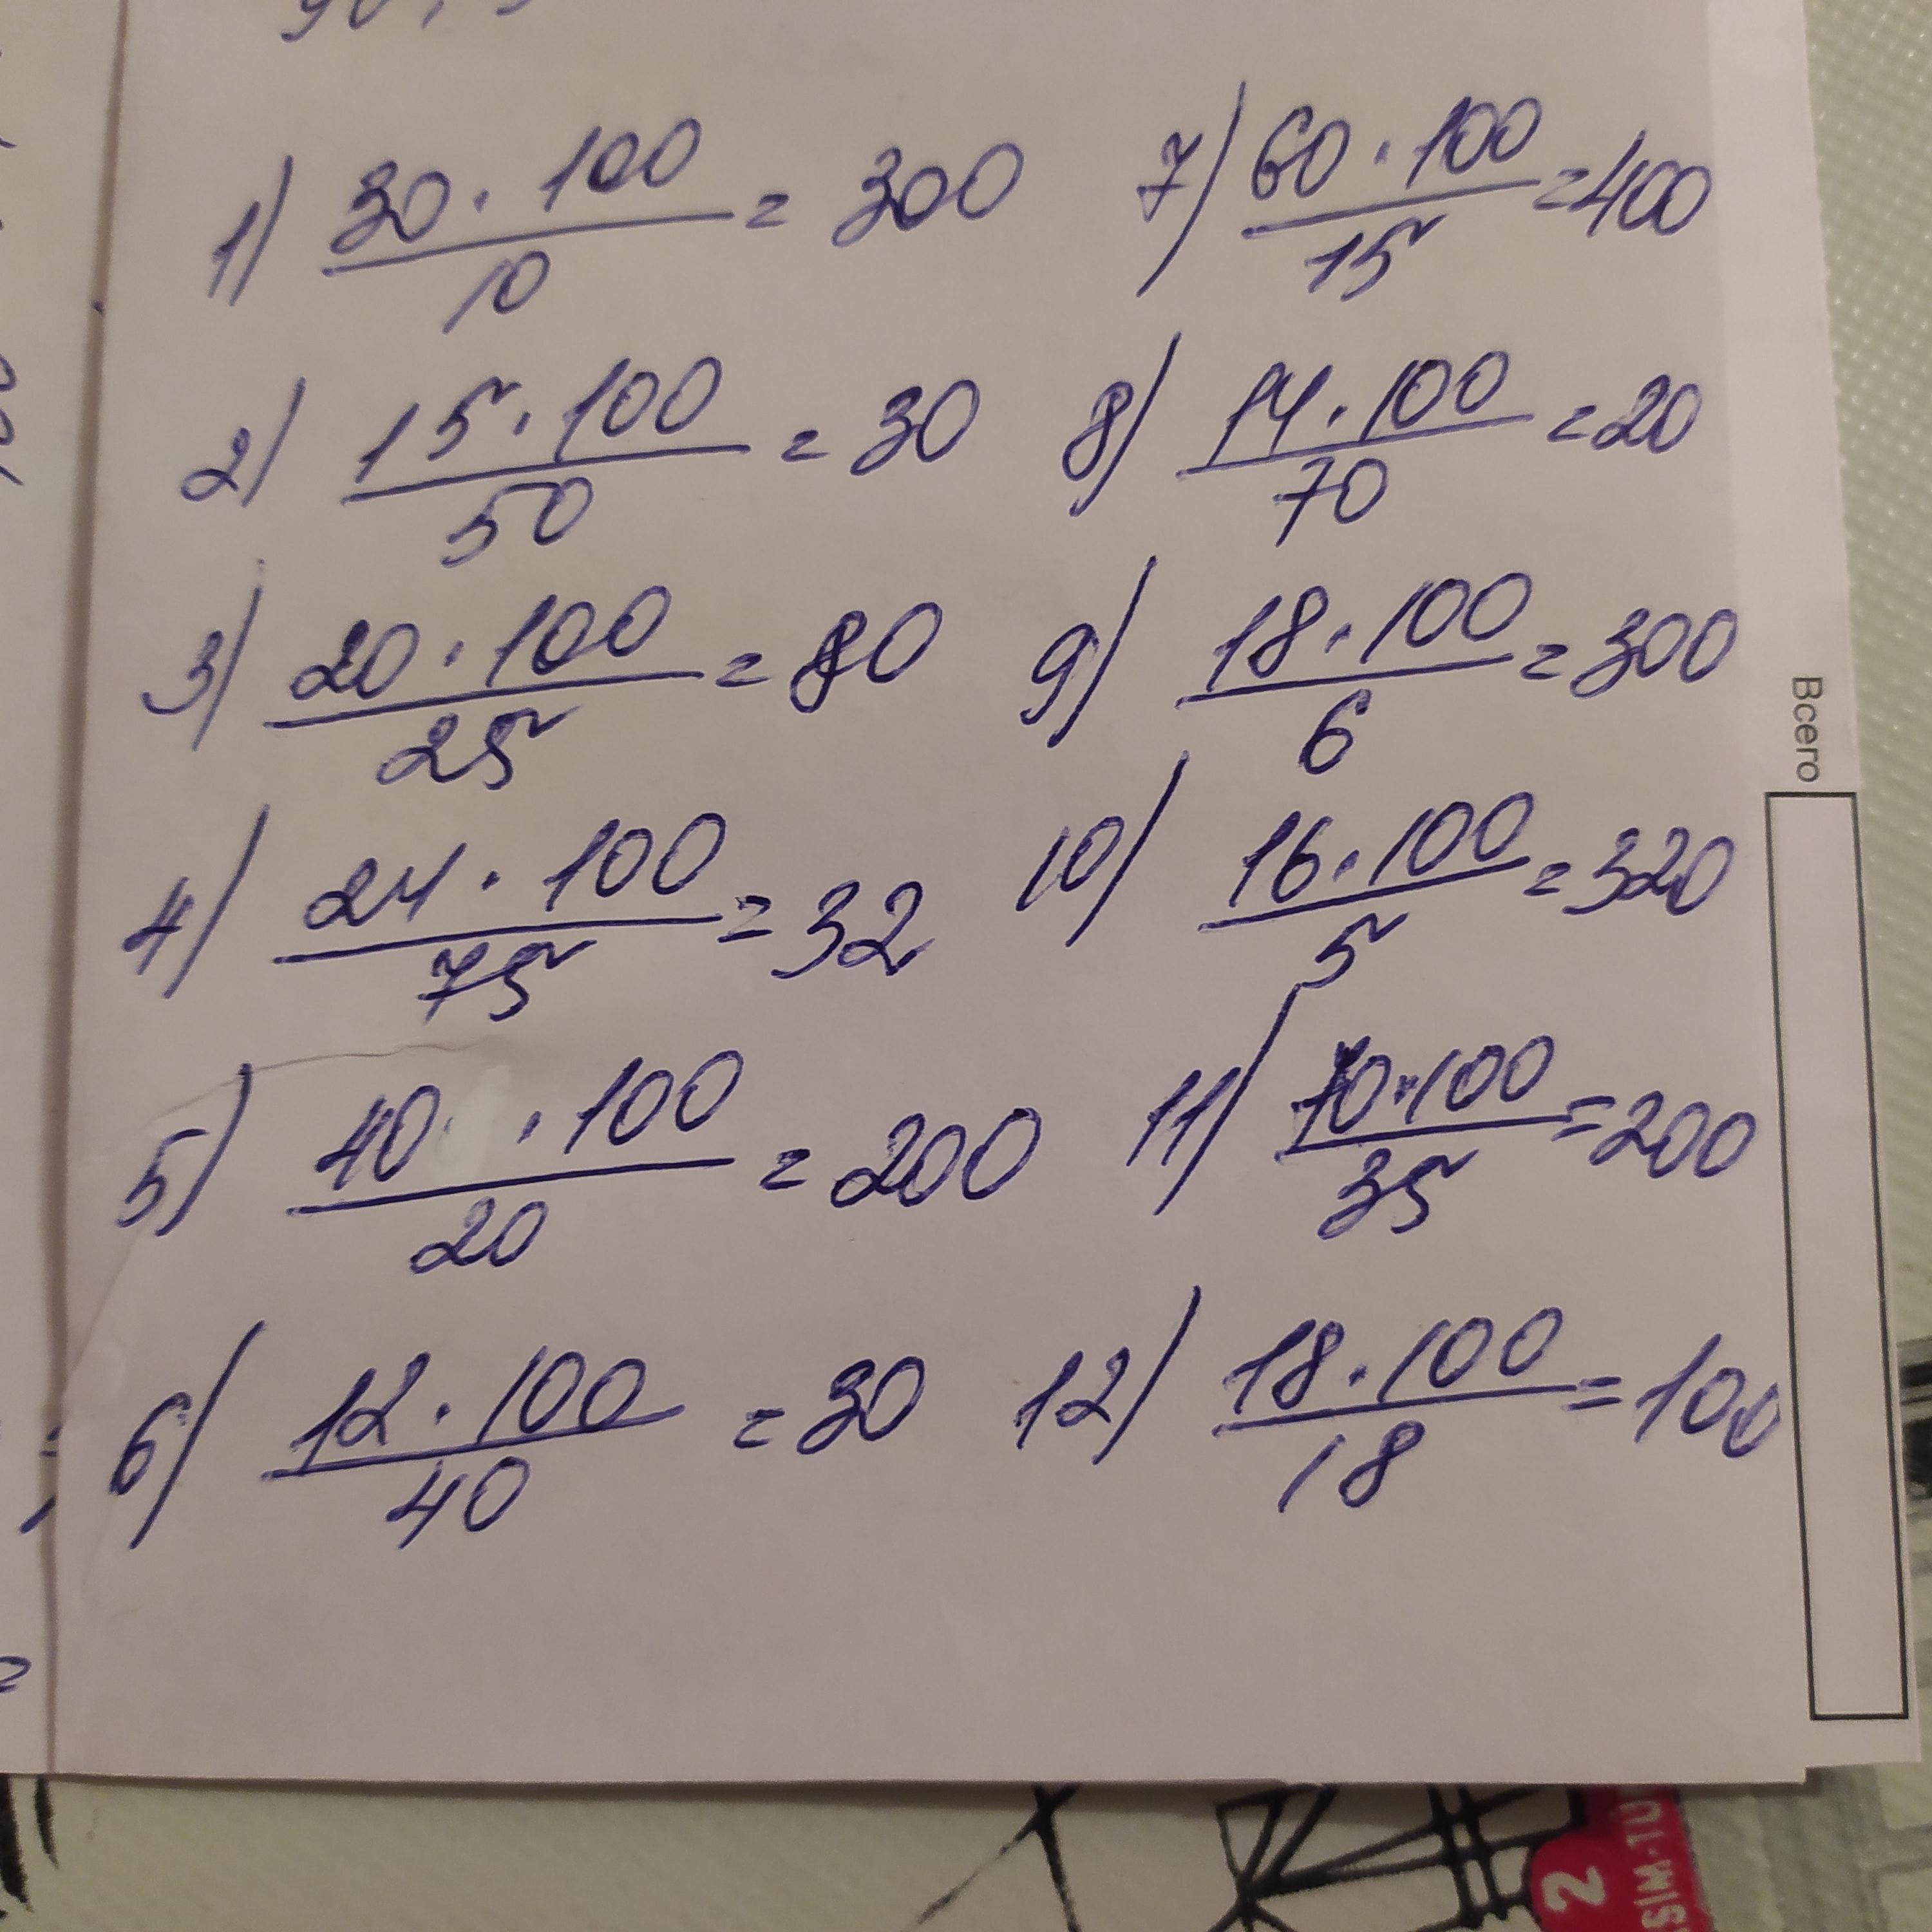 1) 30 · 100 / 10 = 300
2) 15 · 100 / 50 = 30
3) 20 · 100 / 25 = 80
4) 24 · 100 / 75 = 32
5) 40 · 100 / 20 = 200
6) 12 · 100 / 40 = 30
7) 60 · 100 / 15 = 400
8) 14 · 100 / 70 = 20
9) 18 · 100 / 6 = 300
10) 16 · 100 / 5 = 320
11) 70 · 100 / 35 = 200
12) 18 · 100 / 18 = 100
Всего
2